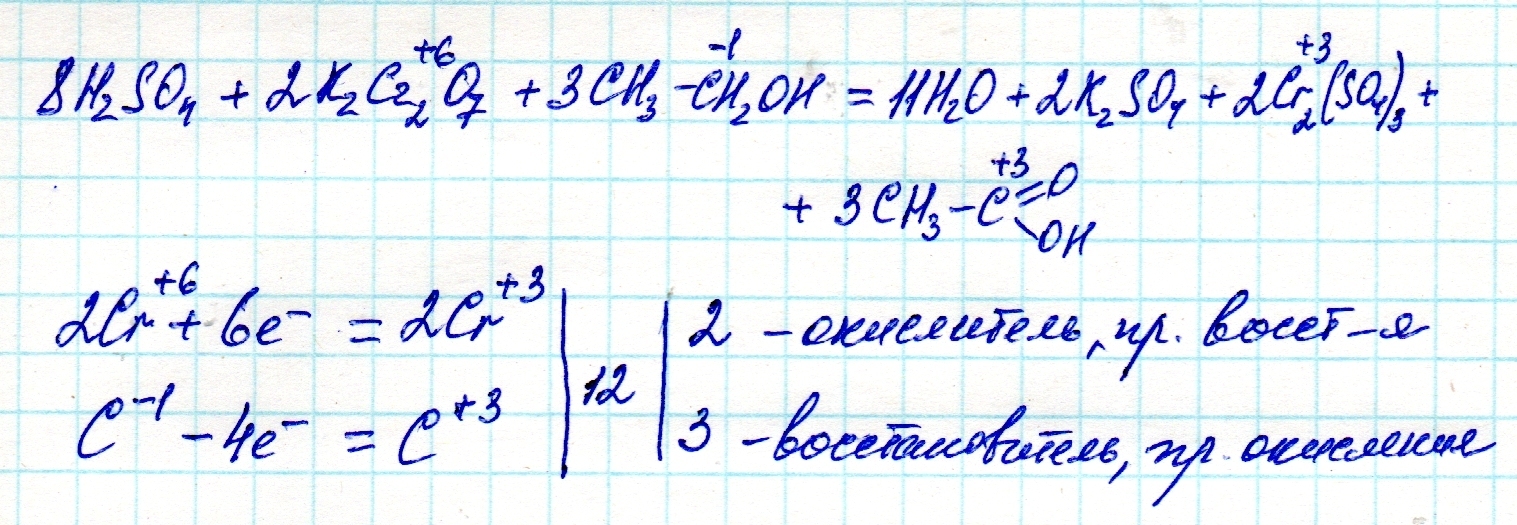 8H₂SO₄ + 2K₂Cr₂⁺⁶O₇ + 3CH₃-C⁻¹H₂OH = 11H₂O + 2K₂SO₄ + 2Cr₂⁺³(SO₄)₃ +
+ 3CH₃-C⁺³=O
OH
2Cr⁺⁶ + 6e⁻ = 2Cr⁺³ | | 2 - окислитель, пр. восст-я
12
C⁻¹ - 4e⁻ = C⁺³ | | 3 - восстановитель, пр. окисления